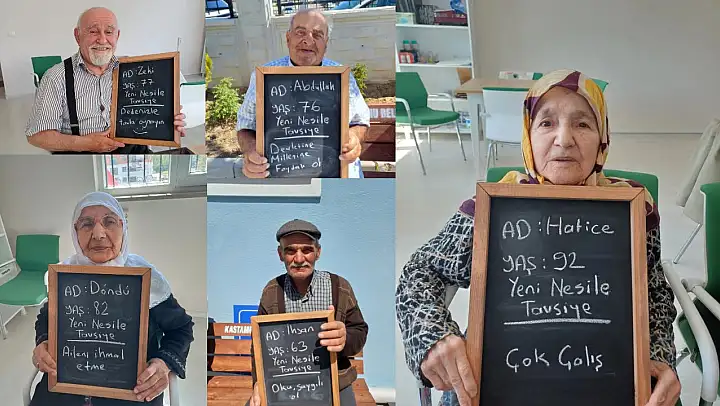 AD: Zeki
YAŞ: 77
Yeni Nesile
Tavsiye
Dedenizle
tavla oynayın
AD: Abdullah
YAŞ: 76
Yeni Nesile
Tavsiye
Devletine
Milletine
Faydalı ol
AD: Hatice
YAŞ: 92
Yeni Nesile
Tavsiye
Çok Çalış
AD: Döndü
YAŞ: 82
Yeni Nesile
Tavsiye
Aileni ihmal
etme
AD: İhsan
YAŞ: 63
Yeni Nesile
Tavsiye
Oku, saygılı
ol
KASTAM